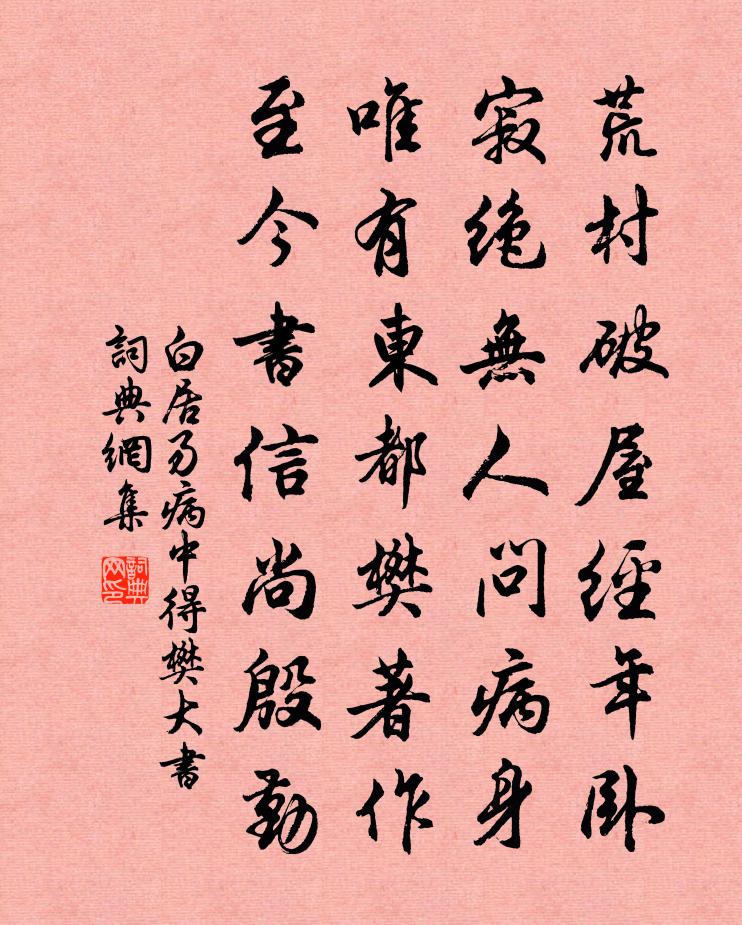 荒村破屋經年卧
寂絶無人問病身
唯有東都樊著作
至今書信尚殷勤
白居易病中得樊大書
詞典網集
詞典
网印